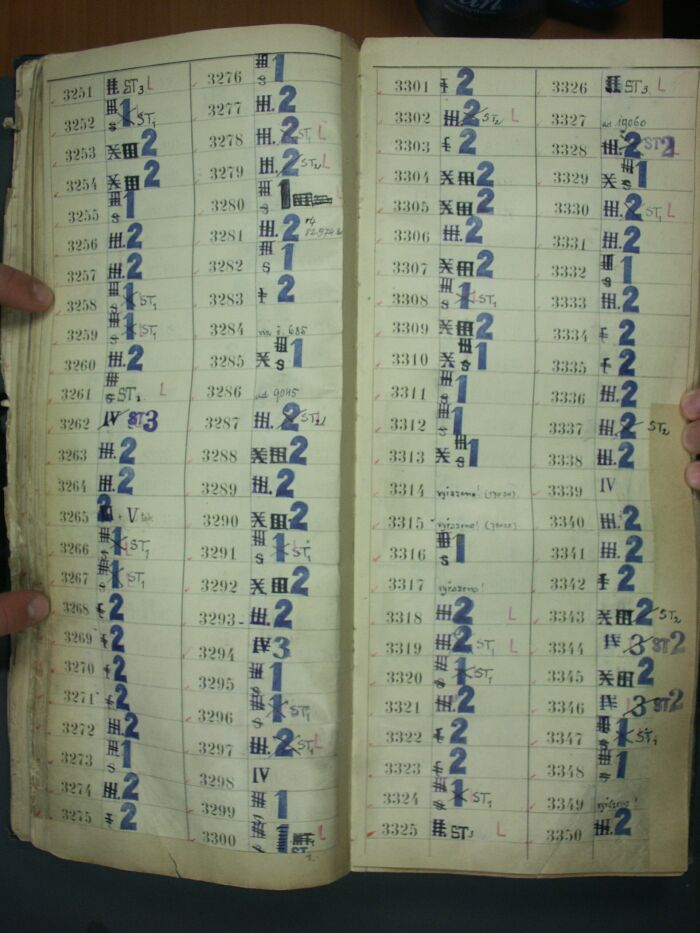 3251 ST3 L
3252 1 ST1
3253 X III 2
3254 X III 2
3255 III S 1
3256 III. 2
3257 III. 2
3258 III S 1 ST1
3259 III S 1 ST1
3260 III. 2
3261 III S L
3262 IV ST3
3263 III. 2
3264 III. 2
3265 2 + V
3266 III S 1 ST1
3267 III S 1 ST1
3268 I 2
3269 I 2
3270 I 2
3271 I 2
3272 III. 2
3273 III S 1
3274 III. 2
3275 I 2
3276 III S 1
3277 III. 2
3278 III. 2 ST1 L
3279 III. 2 ST2 L
3280 III S 1
3281 III. 2
3282 III S 1
3283 I 2
3284 viz. č. 685
3285 X III S 1
3286 ad 9045
3287 III. 2 ST2
3288 X III 2
3289 III. 2
3290 X III 2
3291 III S 1 ST1
3292 X III 2
3293 III. 2
3294 IV 3
3295 III S 1
3296 III S 1 ST1
3297 III. 2 ST1 L
3298 IV
3299 III 1
3300 III S 1 ST1 L
3301 I 2
3302 III 2 ST2 L
3303 I 2
3304 X III 2
3305 X III 2
3306 III. 2
3307 X III 2
3308 III S 1 ST1
3309 X III 2
3310 X III S 1
3311 III S 1
3312 III S 1
3313 X III S 1
3314 vyřazeno!
3315 vyřazeno!
3316 III S 1
3317 vyřazeno!
3318 III. 2 L
3319 III. 2 ST1 L
3320 III S 1 ST1
3321 III. 2
3322 I 2
3323 I 2
3324 III S 1 ST1
3325 III. ST3 L
3326 ST3 L
3327 ad 19060
3328 III. 2 ST2
3329 X III S 1
3330 III. 2 ST1 L
3331 III. 2
3332 III S 1
3333 III. 2
3334 I 2
3335 I 2
3336 III. 2
3337 III. 2 ST2
3338 III. 2
3339 IV
3340 III. 2
3341 III. 2
3342 I 2
3343 X III 2 ST2
3344 IV 3 ST2
3345 X III 2
3346 IV 3 ST2
3347 III S 1 ST1
3348 III S 1
3349 vyřazeno!
3350 III. 2